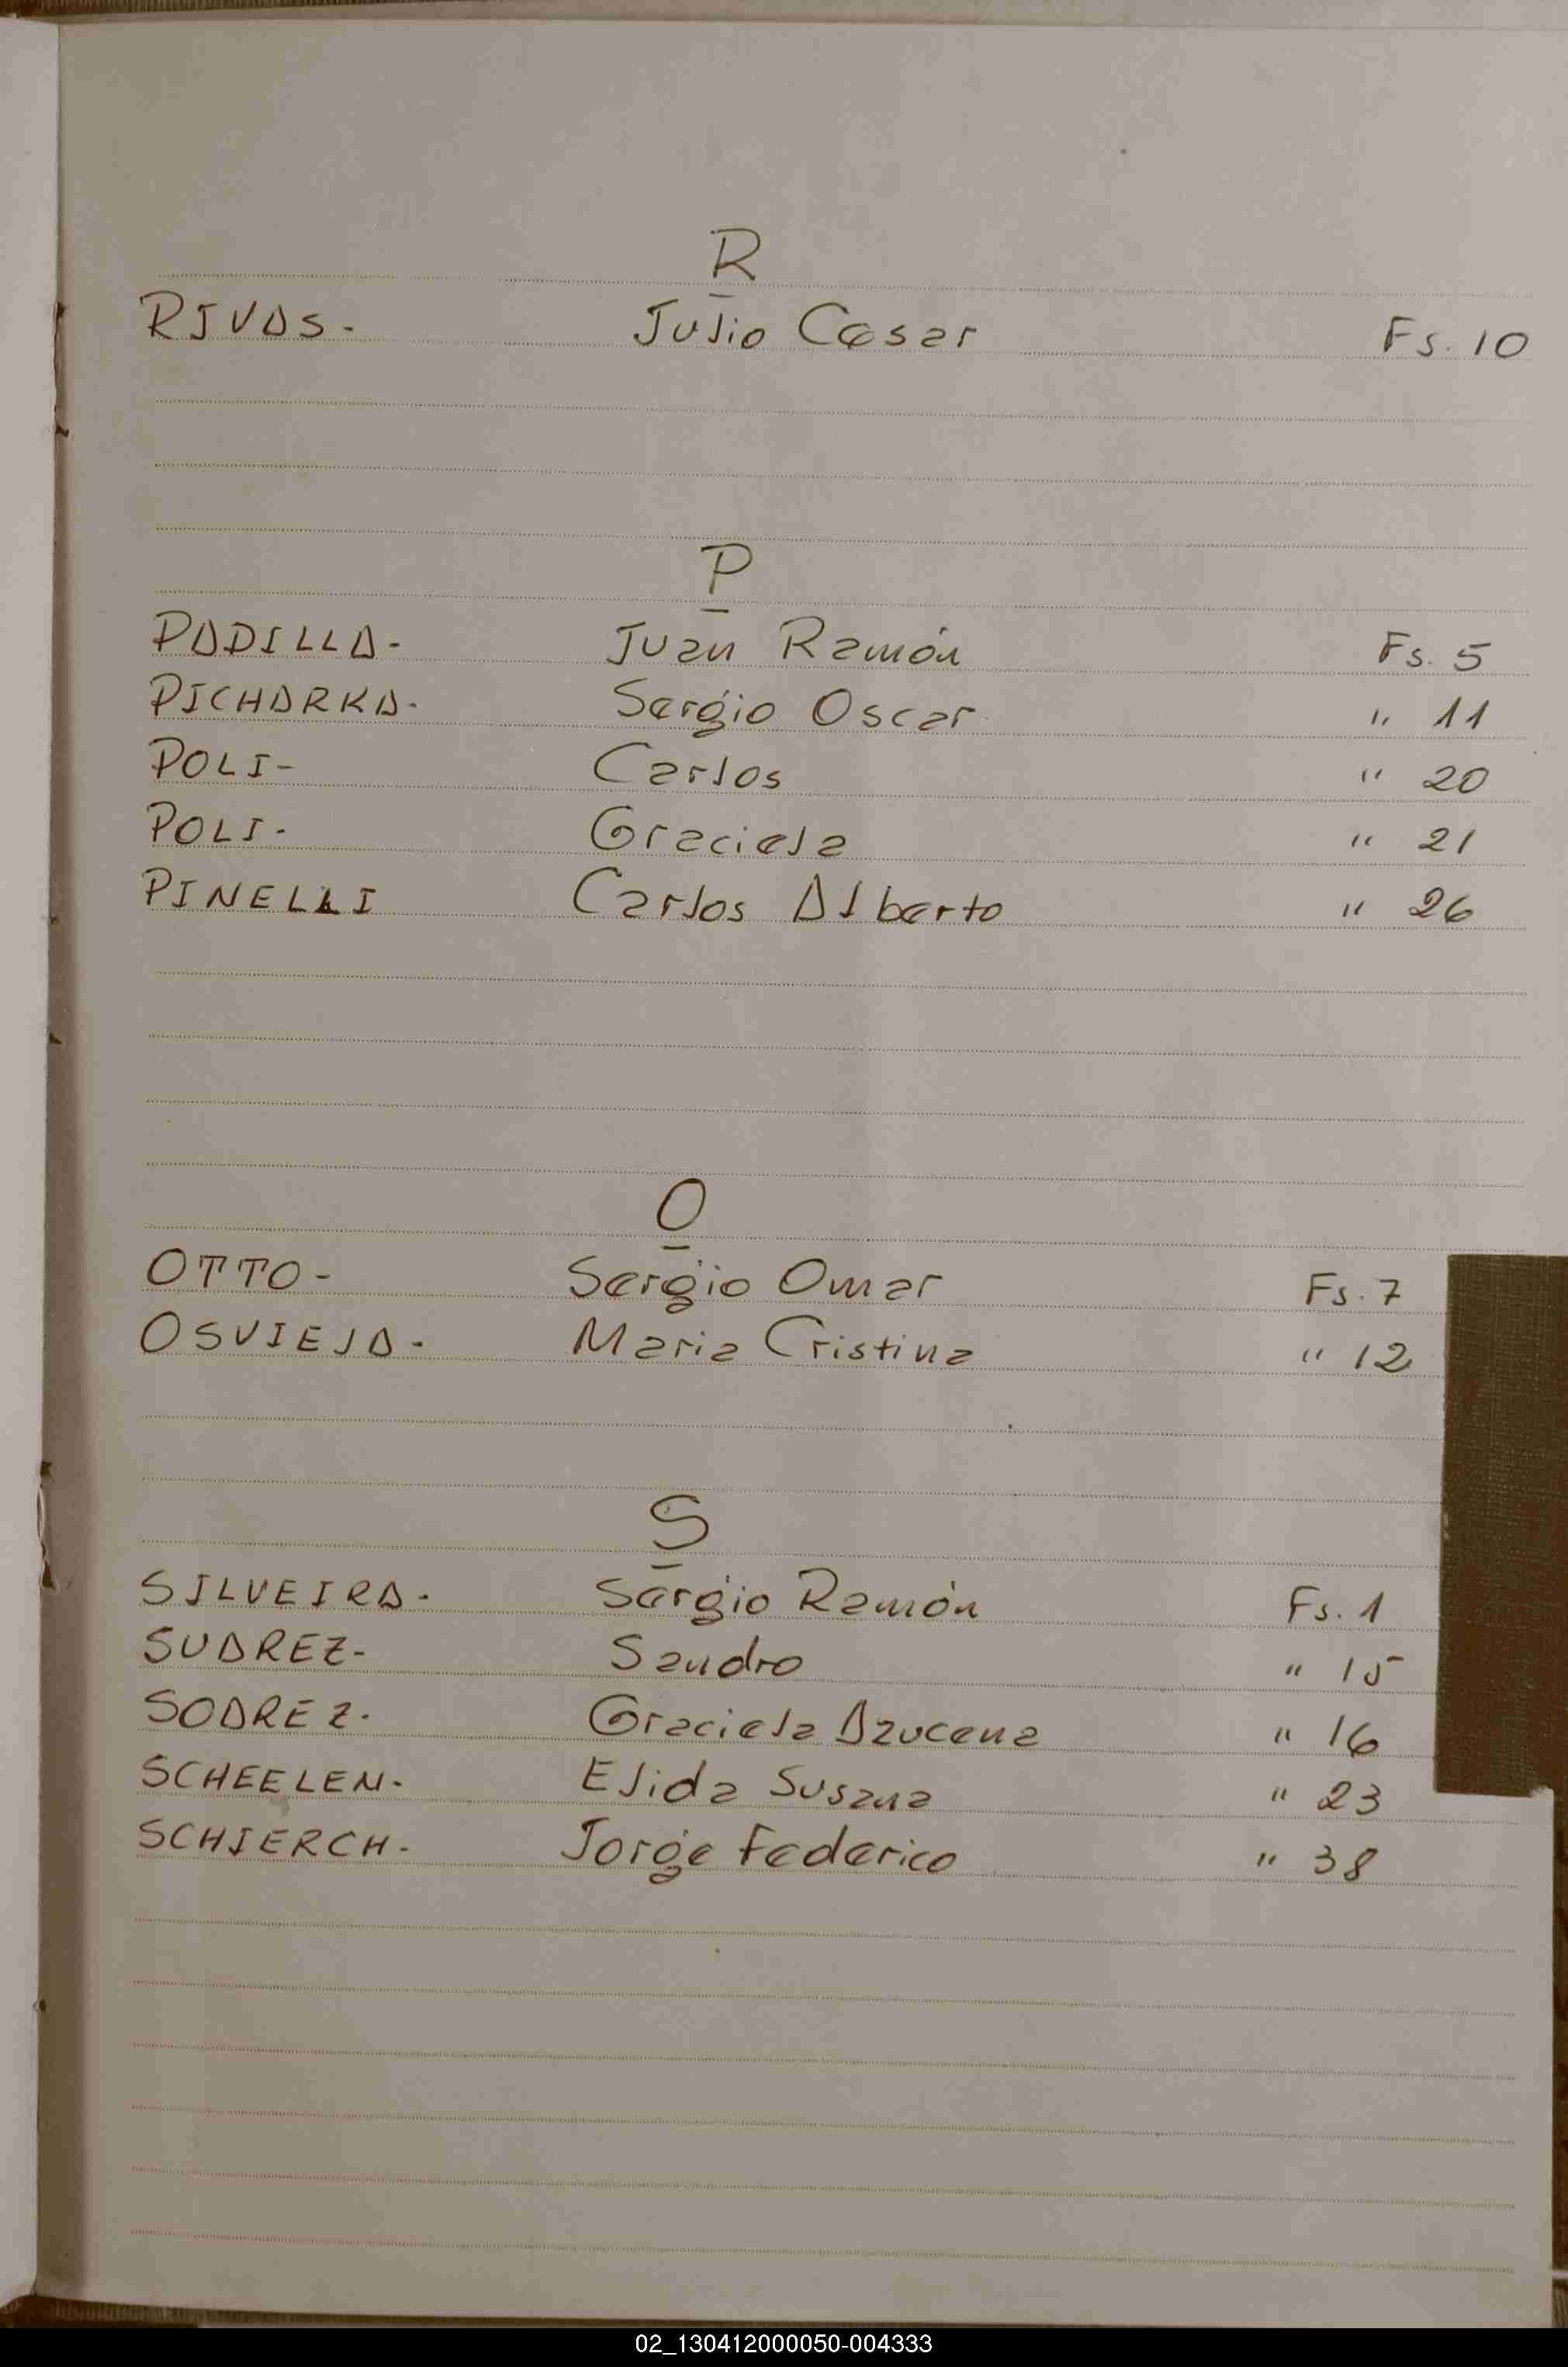 R
RIVAS- Julio Cesar Fs. 10
P
PADILLA- Juan Ramón Fs. 5
PICHARKA- Sergio Oscar " 11
POLI- Carlos " 20
POLI- Graciela " 21
PINELLI Carlos Alberto " 26
O
OTTO- Sergio Omar Fs. 7
OSVIEJA- Maria Cristina " 12
S
SILVEIRA- Sergio Ramón Fs. 1
SUAREZ- Sandro " 15
SOAREZ- Graciela Azucena " 16
SCHEELEN- Elida Susana " 23
SCHIERCH- Jorge Federico " 38
02_130412000050-004333